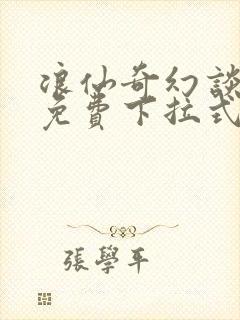 浪仙奇幻談
免費下拉式
張學平